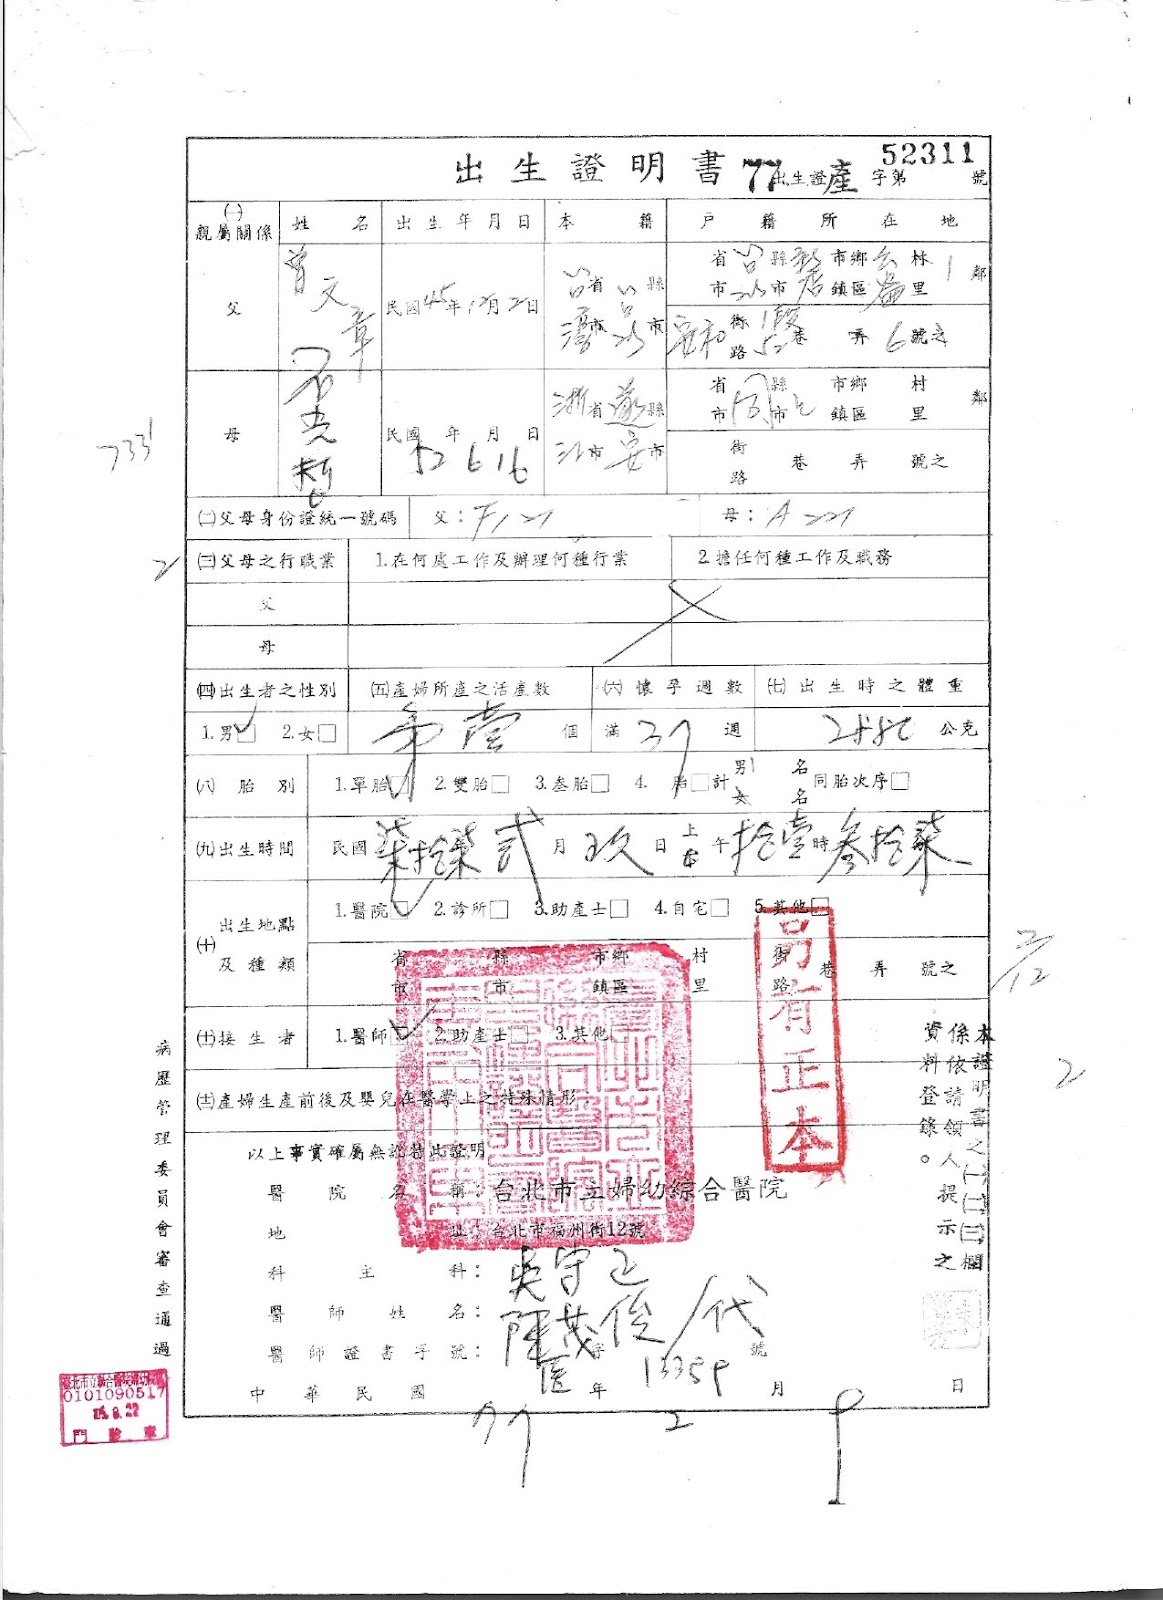 出生證明書 77出生證產字第52311號
㈠親屬關係 姓名 出生年月日 本籍 戶籍所在地
父 曾文章 民國45年12月2日 台灣省 台北縣市 省市台北縣市新店市鄉鎮區公崙村里1鄰
安和街路1段52巷 弄6號之
母 民國52年6月16日 浙江省市遂安縣市 省市同縣市上市鄉鎮區 村里 鄰
街路 巷 弄 號之
7331
㈡父母身份證統一號碼 父：F121 母：A221
2
㈢父母之行職業 1.在何處工作及辦理何種行業 2.擔任何種工作及職務
父
母
㈣出生者之性別 ㈤產婦所產之活產數 ㈥懷孕週數 ㈦出生時之體重
1.男 2.女 第壹個 滿37週 公克
㈧胎別 1.單胎 2.雙胎 3.叁胎 4. 胎 計男 名女 名 同胎次序
㈨出生時間 民國柒拾柒 貳月玖日上午拾壹時叁拾柒
㈩出生地點及種類 1.醫院 2.診所 3.助產士 4.自宅 5.其他
省市 縣市 市鄉鎮區 村里 街路 巷 弄 號之
2/12
㈩㈠接生者 1.醫師 2.助產士 3.其他
2
㈩㈡產婦生產前後及嬰兒在醫學上之特殊情形
以上事實確屬無訛特此證明
醫院名稱：台北市立婦幼綜合醫院
地址：台北市福州街12號
科主科：吳守正
醫師姓名：陳茂俊/代
醫師證書字號：医字13359號
中華民國77年2月9日
另有正本
本證明書之㈠㈡㈢欄
係依請領人提示之
資料登錄。
病歷管理委員會審查通過
臺北市立聯合醫院婦幼
0101090517
05.8.22
門診章